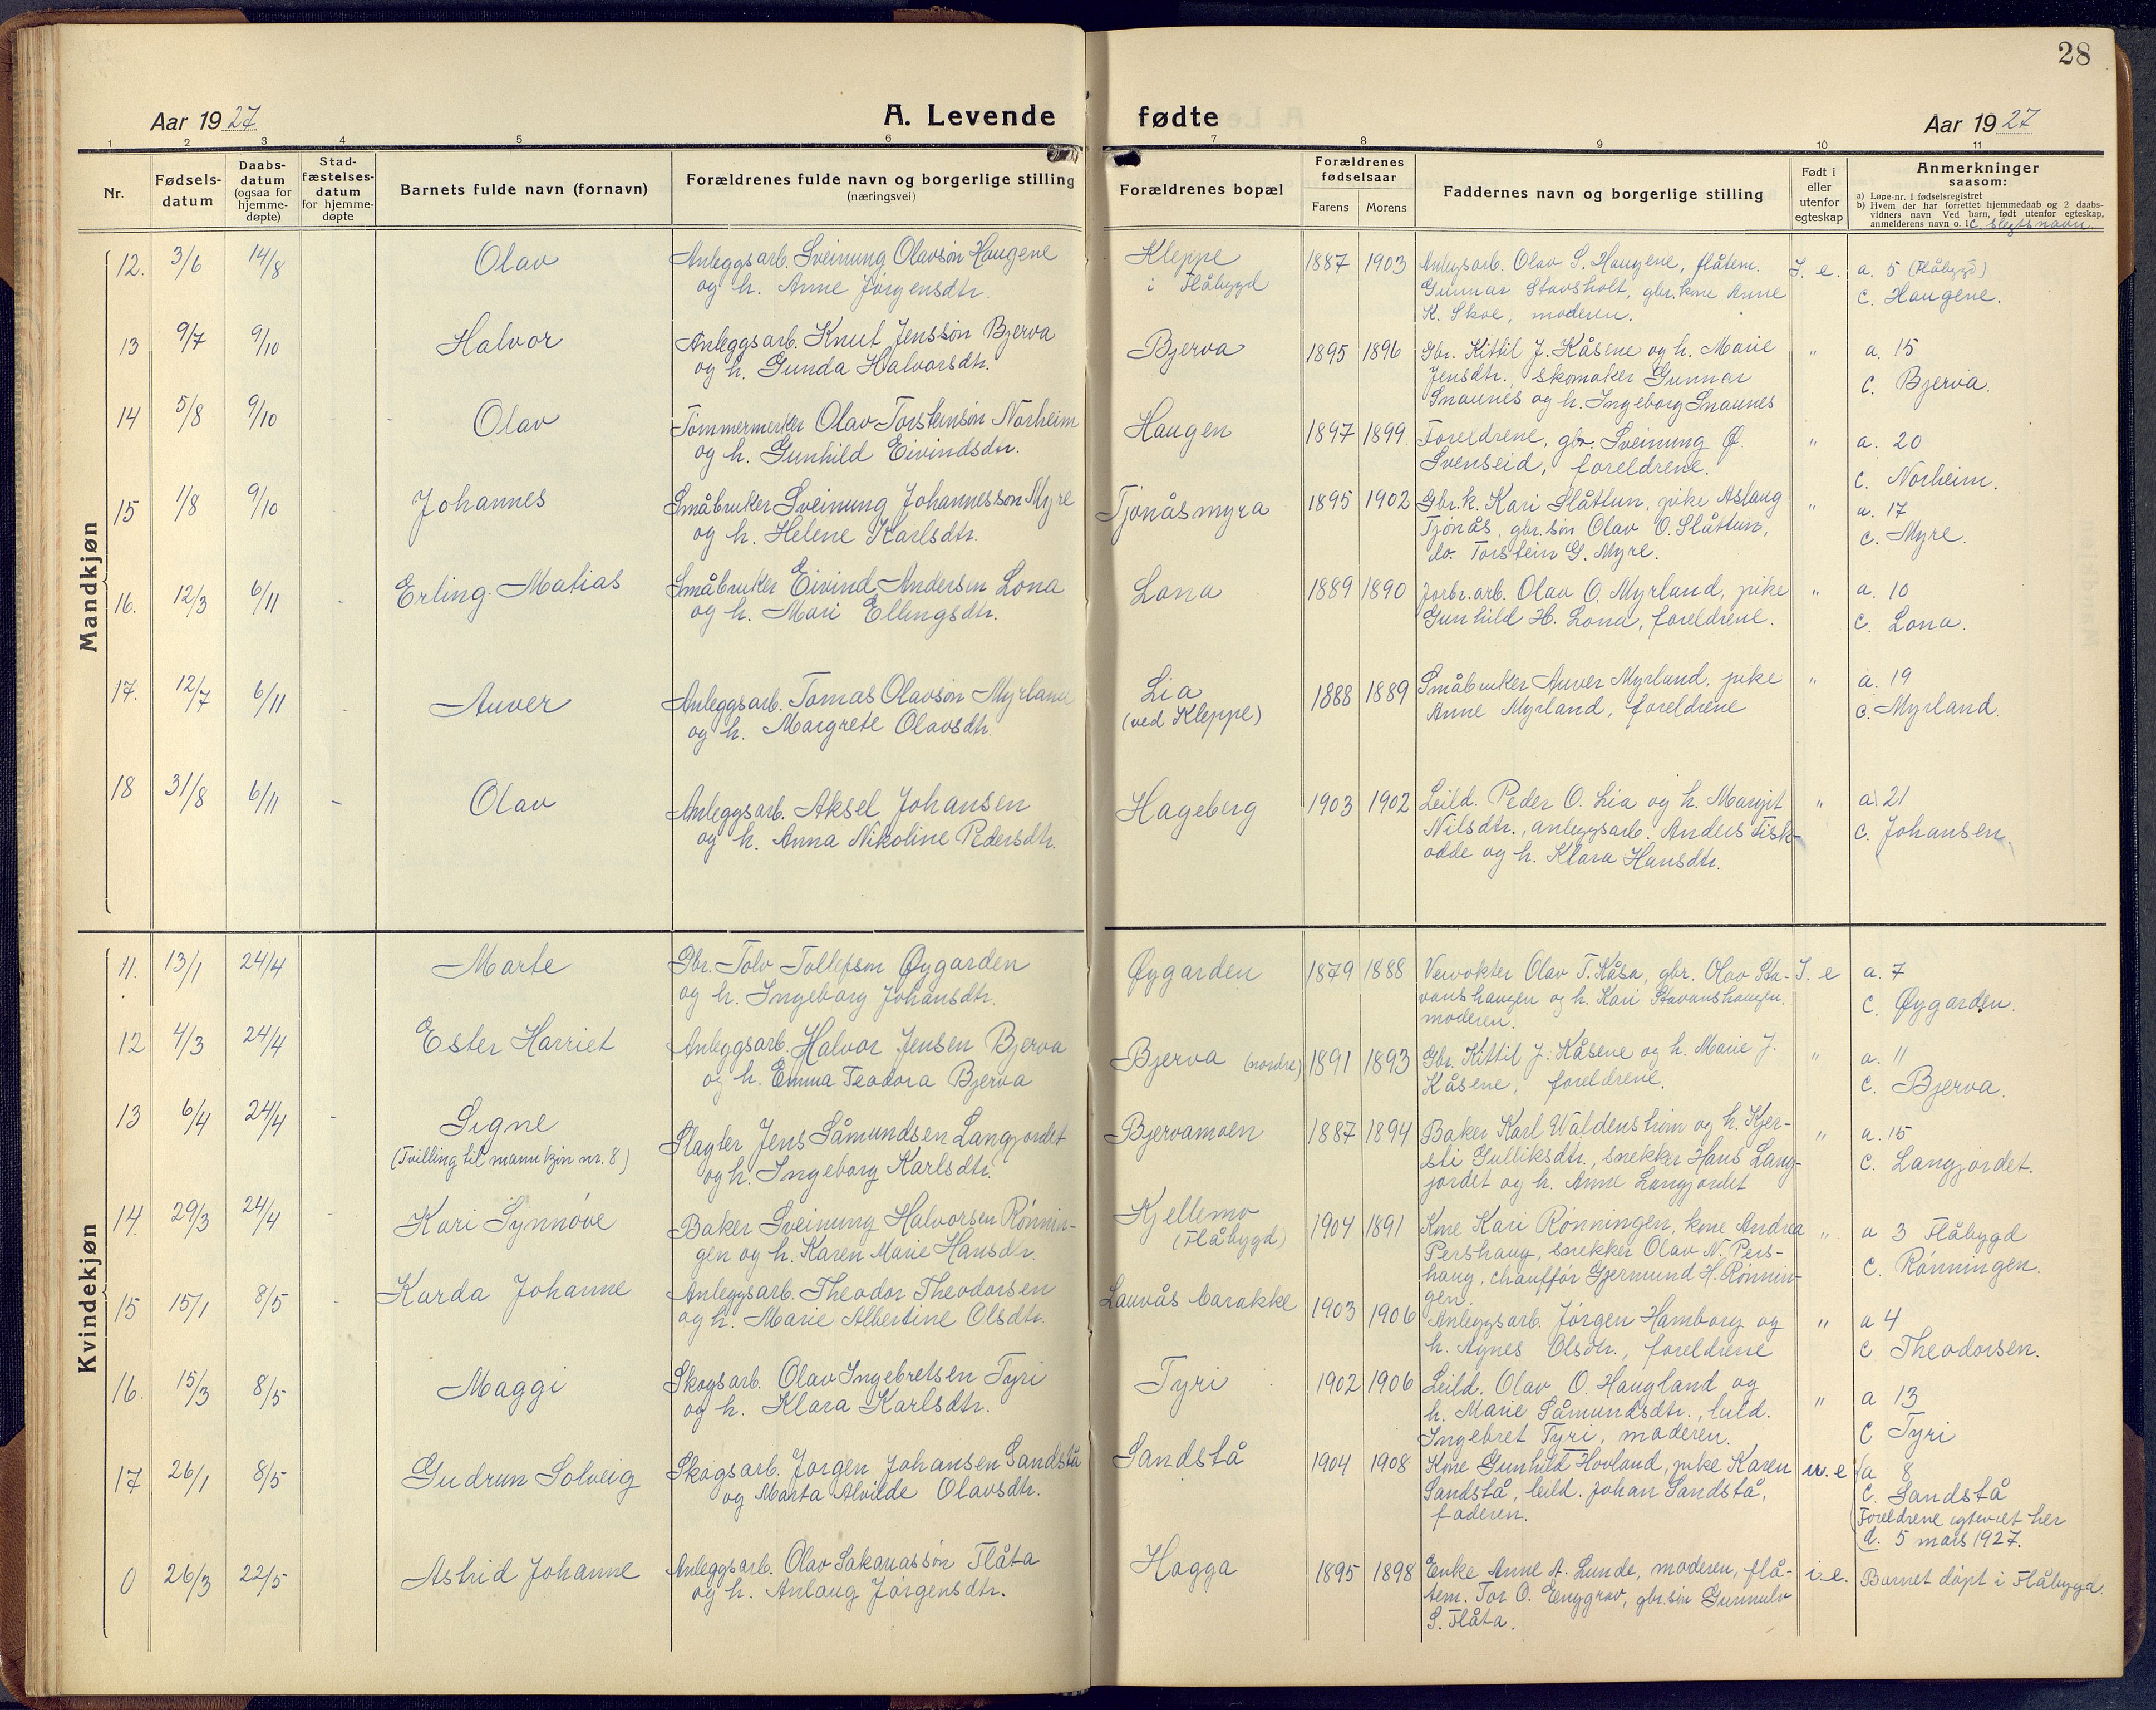 28
Aar 1927 A. Levende fødte Aar 1927
1 2 3 4 5 6 7 8 9 10 11
Nr.
Fødsels-
datum
Daabs-
datum
(ogsaa for
hjemme-
døpte)
Stad-
fæstelses-
datum
for hjemme-
døpte
Barnets fulde navn (fornavn)
Forældrenes fulde navn og borgerlige stilling
(næringsvei)
Forældrenes bopæl
Forældrenes
fødselsaar
Farens Morens
Faddernes navn og borgerlige stilling
Født i
eller
utenfor
egteskap
Anmerkninger
saasom:
a) Løpe-nr. i fødselsregistret
b) Hvem der har forrettet hjemmedaab og 2 daabs-
vidners navn Ved barn, født utenfor egteskap,
anmelderens navn o. l. c. slegtsnavn.
Mandkjøn
12. 3/6 14/8 Olav
Anleggsarb. Sveinung Olavson Haugene
og h. Anne Jørgensdtr.
Kleppe
i Flåbygd
1887 1903
Anlegsarb. Olav S. Haugene, flåtem.
Gunnar Stavsholt, gbr.kone Anne
K. Skoe, moderen.
I. e.
a. 5 (Flåbygd)
c. Haugene.
13 9/7 9/10 Halvor
Anleggsarb. Knut Jensson Bjerva
og h. Gunda Halvorsdtr.
Bjerva
1895 1896
Gbr. Kittil J. Kåsene og h. Marie
Jensdtr., skomaker Gunnar
Snaunes og h. Ingeborg Snaunes
"
a. 15
c. Bjerva.
14 5/8 9/10 - Olav
Tømmermerker Olav Torsteinson Norheim
og h. Gunhild Eivindsdtr.
Haugen
1897 1899.
Foreldrene, gbr. Sveinung Ø.
Svenseid, foreldrene.
"
a. 20
c. Norheim.
15 1/8 9/10 Johannes
Småbruker Sveinung Johannesson Myre
og h. Helene Karlsdtr.
Tjønåsmyra
1895 1902
Gbr.k. Kari Slåttun, pike Aslaug
Tjønås, gbr.søn Olav O. Slåttun,
do. Torstein G. Myre.
"
a. 17
c. Myre.
16. 12/3 6/11 - Erling Matias
Småbruker Eivind Andersen Lona
og h. Mari Ellingsdtr.
Lona
1889 1890
Jorbr.arb. Olav O. Myrland, pike
Gunhild H. Lona, foreldrene.
"
a. 10
c. Lona.
17. 12/7 6/11 Auver
Anleggsarb. Tomas Olavson Myrland
og h. Margrete Olavsdtr.
Lia
(ved Kleppe)
1888 1889
Småbruker Auver Myrland, pike
Anne Myrland, foreldrene
"
a. 19
c. Myrland.
18 31/8 6/11 - Olav
Anleggsarb. Aksel Johansen
og h. Anna Nikoline Pedersdtr.
Hageberg
1903 1902
Leild. Peder O. Lia og h. Margit
Nilsdtr., anleggsarb. Anders Fisk-
odde og h. Klara Hansdtr.
"
a 21
c. Johansen.
Kvindekjøn
11. 13/1 24/4 Marte
Gbr. Tolv Tollefson Øygarden
og h. Ingeborg Johansdtr.
Øygarden
1879 1888
Veivokter Olav T. Kåsa, gbr. Olav Sta-
vanshaugen og h. Kari Stavanshaugen.
moderen.
I. e
a. 7
c. Øygarden.
12 4/3 24/4 Ester Harriet
Anleggsarb. Halvor Jensen Bjerva
og h. Emma Teodora Bjerva
Bjerva (nordre)
1891 1893
Gbr. Kittil J. Kåsene og h. Marie J.
Kåsene, foreldrene.
"
a. 11
c. Bjerva.
13 6/4 24/4 - Signe
(Tvilling til mannkjøn nr. 8)
Slagter Jens Såmundsen Langjordet
og h. Ingeborg Karlsdtr.
Bjervamoen
1887 1894
Baker Karl Waldenstrøm og h. Kjer-
sti Gulliksdtr., snekker Hans Lang-
jordet og h. Anne Langjordet
"
a. 15
c. Langjordet.
14. 29/3 24/4 Kari Synnöve
Baker Sveinung Halvorsen Rønnin-
gen og h. Karen Marie Hansdtr.
Kjellemo
(Flåbygd)
1904 1891
Kone Kari Rønningen, kone Andrea
Pershaug, snekker Olav N. Pers-
haug, chauffør Gjermund H. Rønnin-
gen.
"
a 3 Flåbygd
c. Rønningen.
15 15/1 8/5 - Karda Johanne
Anleggsarb. Theodor Theodorsen
og h. Marie Albertine Olsdtr.
Lauvås barakke
1903 1906
Anleggsarb. Jørgen Hamborg og
h. Agnes Olsdtr., foreldrene
"
a 4
c Theodorsen.
16. 15/3 8/5 Maggi
Skogsarb. Olav Ingebretsen Tyri
og h. Klara Karlsdtr.
Tyri
1902 1906
Leild. Olav O. Haugland og
h. Marie Såmundsdtr., leild.
Ingebret Tyri, moderen.
"
a 13
c Tyri
17 26/1 8/5 Gudrun Solveig
Skogsarb. Jørgen Johansen Sandstå
og Marta Alvilde Olavsdtr.
Sandstå
1904 1908
Kone Gunhild Hovland, pike Karen
Sandstå, leild. Johan Sandstå,
faderen.
u. e
a 8
c. Sandstå
Foreldrene egteviet her
d. 5 mars 1927.
0 26/3 22/5 Astrid Johanne
Anleggsarb. Olav Sakariasson Flåta
og h. Anlaug Jørgensdtr.
Hogga
1895 1898
Enke Anne A. Lunde, moderen, flå-
tem. Tor O. Enggrav, gbr.søn Gunnulv
S. Flåta.
i. e.
Barnet døpt i Flåbygd.